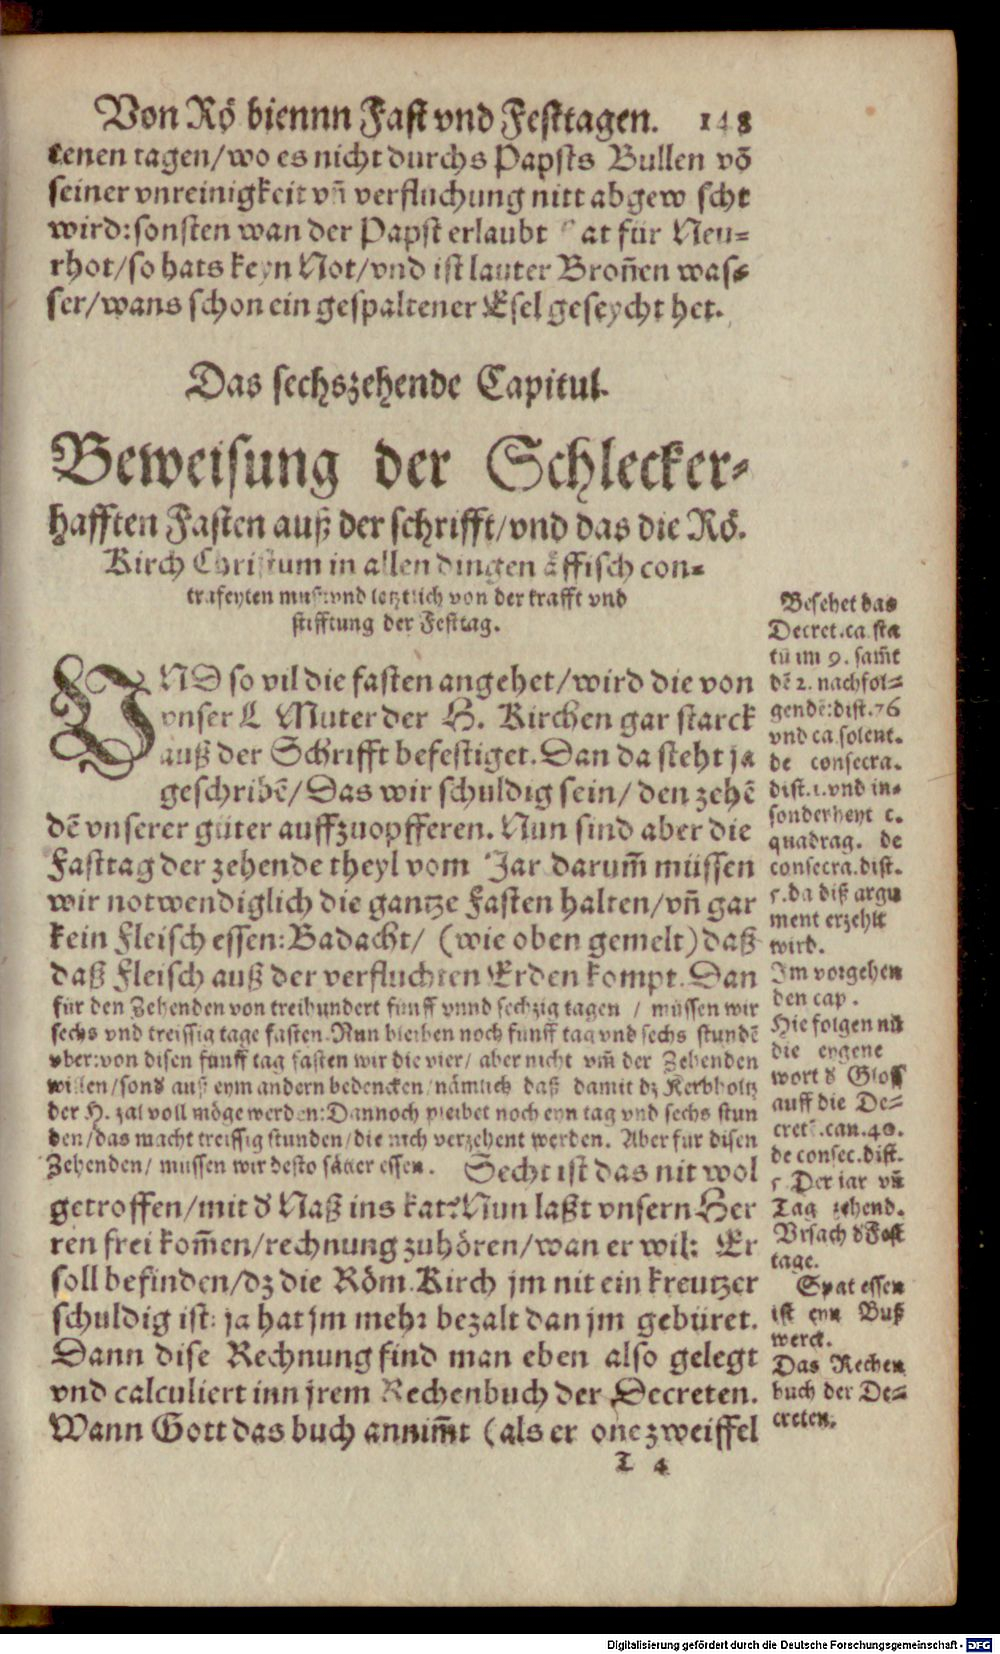 Von Rö biennn Fast vnd Festtagen. 148
tenen tagen/wo es nicht durchs Papsts Bullen võ
seiner vnreinigkeit vñ verfluchung nitt abgew scht
wird:sonsten wan der Papst erlaubt at für Neu-
rhot/so hats keyn Not/vnd ist lauter Broñen was-
ser/wans schon ein gespaltener Esel geseycht het.
Das sechszehende Capitul.
Beweisung der Schlecker-
hafften Fasten auß der schrifft/vnd das die Rö.
Kirch Christum in allen dingen äffisch con-
trafeyten muß:vnd letztlich von der krafft vnd
stifftung der Festtag.
VND so vil die fasten angehet/wird die von
vnser L Muter der H. Kirchen gar starck
auß der Schrifft befestiget. Dan da steht ja
geschribẽ/Das wir schuldig sein/den zehẽ
dẽ vnserer güter auffzuopfferen. Nun sind aber die
Fasttag der zehende theyl vom Jar darum̃ müssen
wir notwendiglich die gantze Fasten halten/vñ gar
kein Fleisch essen:Badacht/ (wie oben gemelt) daß
daß Fleisch auß der verfluchten Erden kompt. Dan
für den Zehenden von treihundert funff vnnd sechzig tagen / müssen wir
sechs vnd treissig tage fasten. Nun bleiben noch funff tag vnd sechs stundẽ
vber:von disen funff tag fasten wir die vier/ aber nicht vm̃ der Zehenden
willen/sond auß eym andern bedencken/nämlich daß damit dz Kerbholtz
der H. zal voll möge werden:Dannoch pleibet noch eyn tag vnd sechs stun
den/das macht treissig stunden/die nich verzehent werden. Aber für disen
Zehenden/ müssen wir desto säuer essen. Secht ist das nit wol
getroffen/mit d' Naß ins kat? Nun laßt vnsern Her
ren frei kom̃en/rechnung zuhören/wan er wil: Er
soll befinden/dz die Röm. Kirch jm nit ein kreutzer
schuldig ist: ja hat jm mehr bezalt dan jm gebüret.
Dann dise Rechnung find man eben also gelegt
vnd calculiert inn jrem Rechenbuch der Decreten.
Wann Gott das buch annim̃t (als er one zweiffel
T 4
Besehet das
Decret.ca sta
tũ im 9. sam̃t
dẽ 2. nachfol-
gendẽ:dist.76
vnd ca.solent.
de consecra.
dist.1.vnd in-
sonderheyt c.
quadrag. de
consecra.dist.
5.da diß argu
ment erzehlt
wird.
Im vorgehen
den cap.
Hie folgen nũ
die eygene
wort d' Gloß
auff die De-
cret .can.40.
de consec.dist.
5 Der jar vñ
Tag zehend.
Vrsach d' Fest
tage.
Spat essen
ist eyn Buß
werck.
Das Rechen
buch der De-
creten.
Digitalisierung gefördert durch die Deutsche Forschungsgemeinschaft - DFG